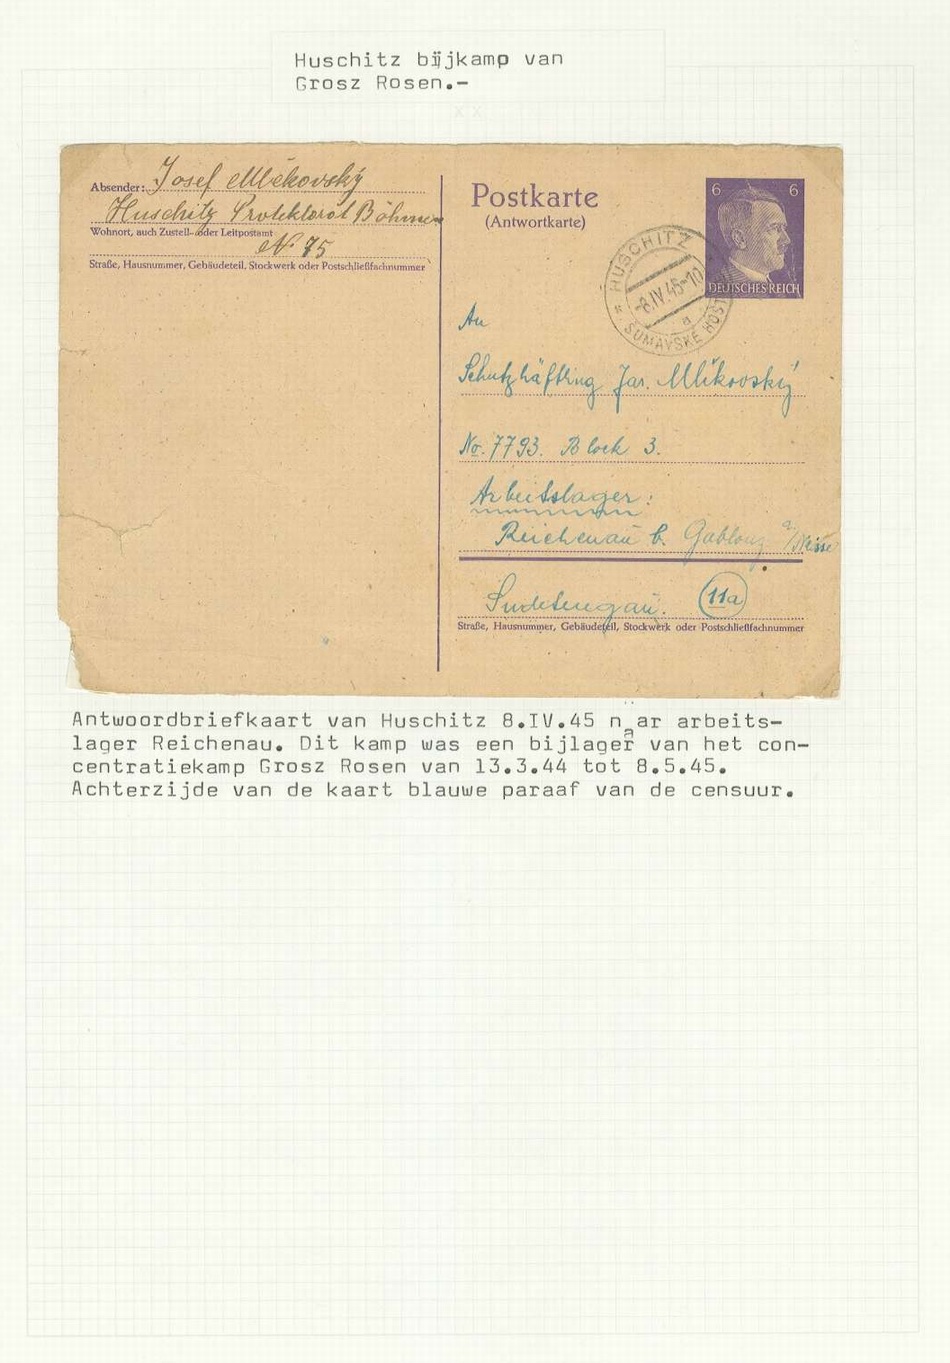 Huschitz bijkamp van
Grosz Rosen.-
xx
Absender: Josef Mlékovský
Huschitz Protektorat Böhmen
Wohnort, auch Zustell- oder Leitpostamt
N 75
Straße, Hausnummer, Gebäudeteil, Stockwerk oder Postschließfachnummer
Postkarte
(Antwortkarte)
6 6
DEUTSCHES REICH
HUSCHITZ
-8.IV.45-10
a
ŠUMAVSKÉ HOŠT
An
Schutzhäftling Jar. Mlíkovský
No. 7793. Block 3.
Arbeitslager:
Reichenau b. Gablonz a/Neisse
Sudetengau. 11a
Straße, Hausnummer, Gebäudeteil, Stockwerk oder Postschließfachnummer
Antwoordbriefkaart van Huschitz 8.IV.45 naar arbeits-
lager Reichenau. Dit kamp was een bijlager van het con-
centratiekamp Grosz Rosen van 13.3.44 tot 8.5.45.
Achterzijde van de kaart blauwe paraaf van de censuur.